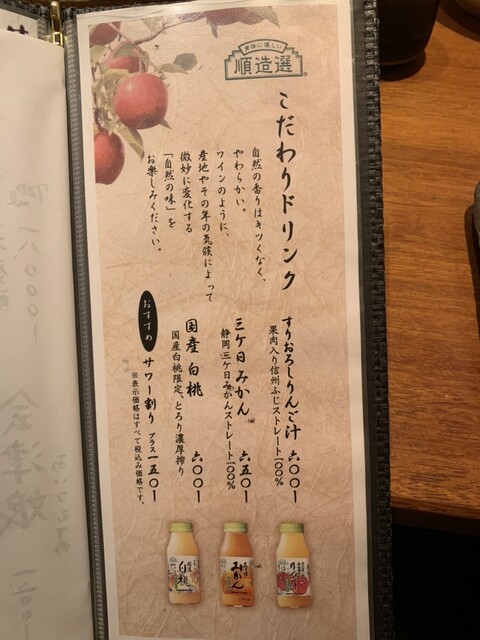 素材に優しい
順造選
こだわりドリンク
自然の香りはキツくなく、
やわらかい。
ワインのように、
産地やその年の気候によって
微妙に変化する
「自然の味」を
お楽しみください。
すりおろしりんご汁 六〇〇ー
果肉入り信州ふじストレート一〇〇%
三ケ日みかん 六五〇ー
静岡三ケ日みかんストレート一〇〇%
国産 白桃 六〇〇ー
国産白桃限定、とろり濃厚搾り
おすすめ
サワー割り プラス一五〇ー
※表示価格はすべて税込み価格です。
白桃
みかん
りんご
会津娘